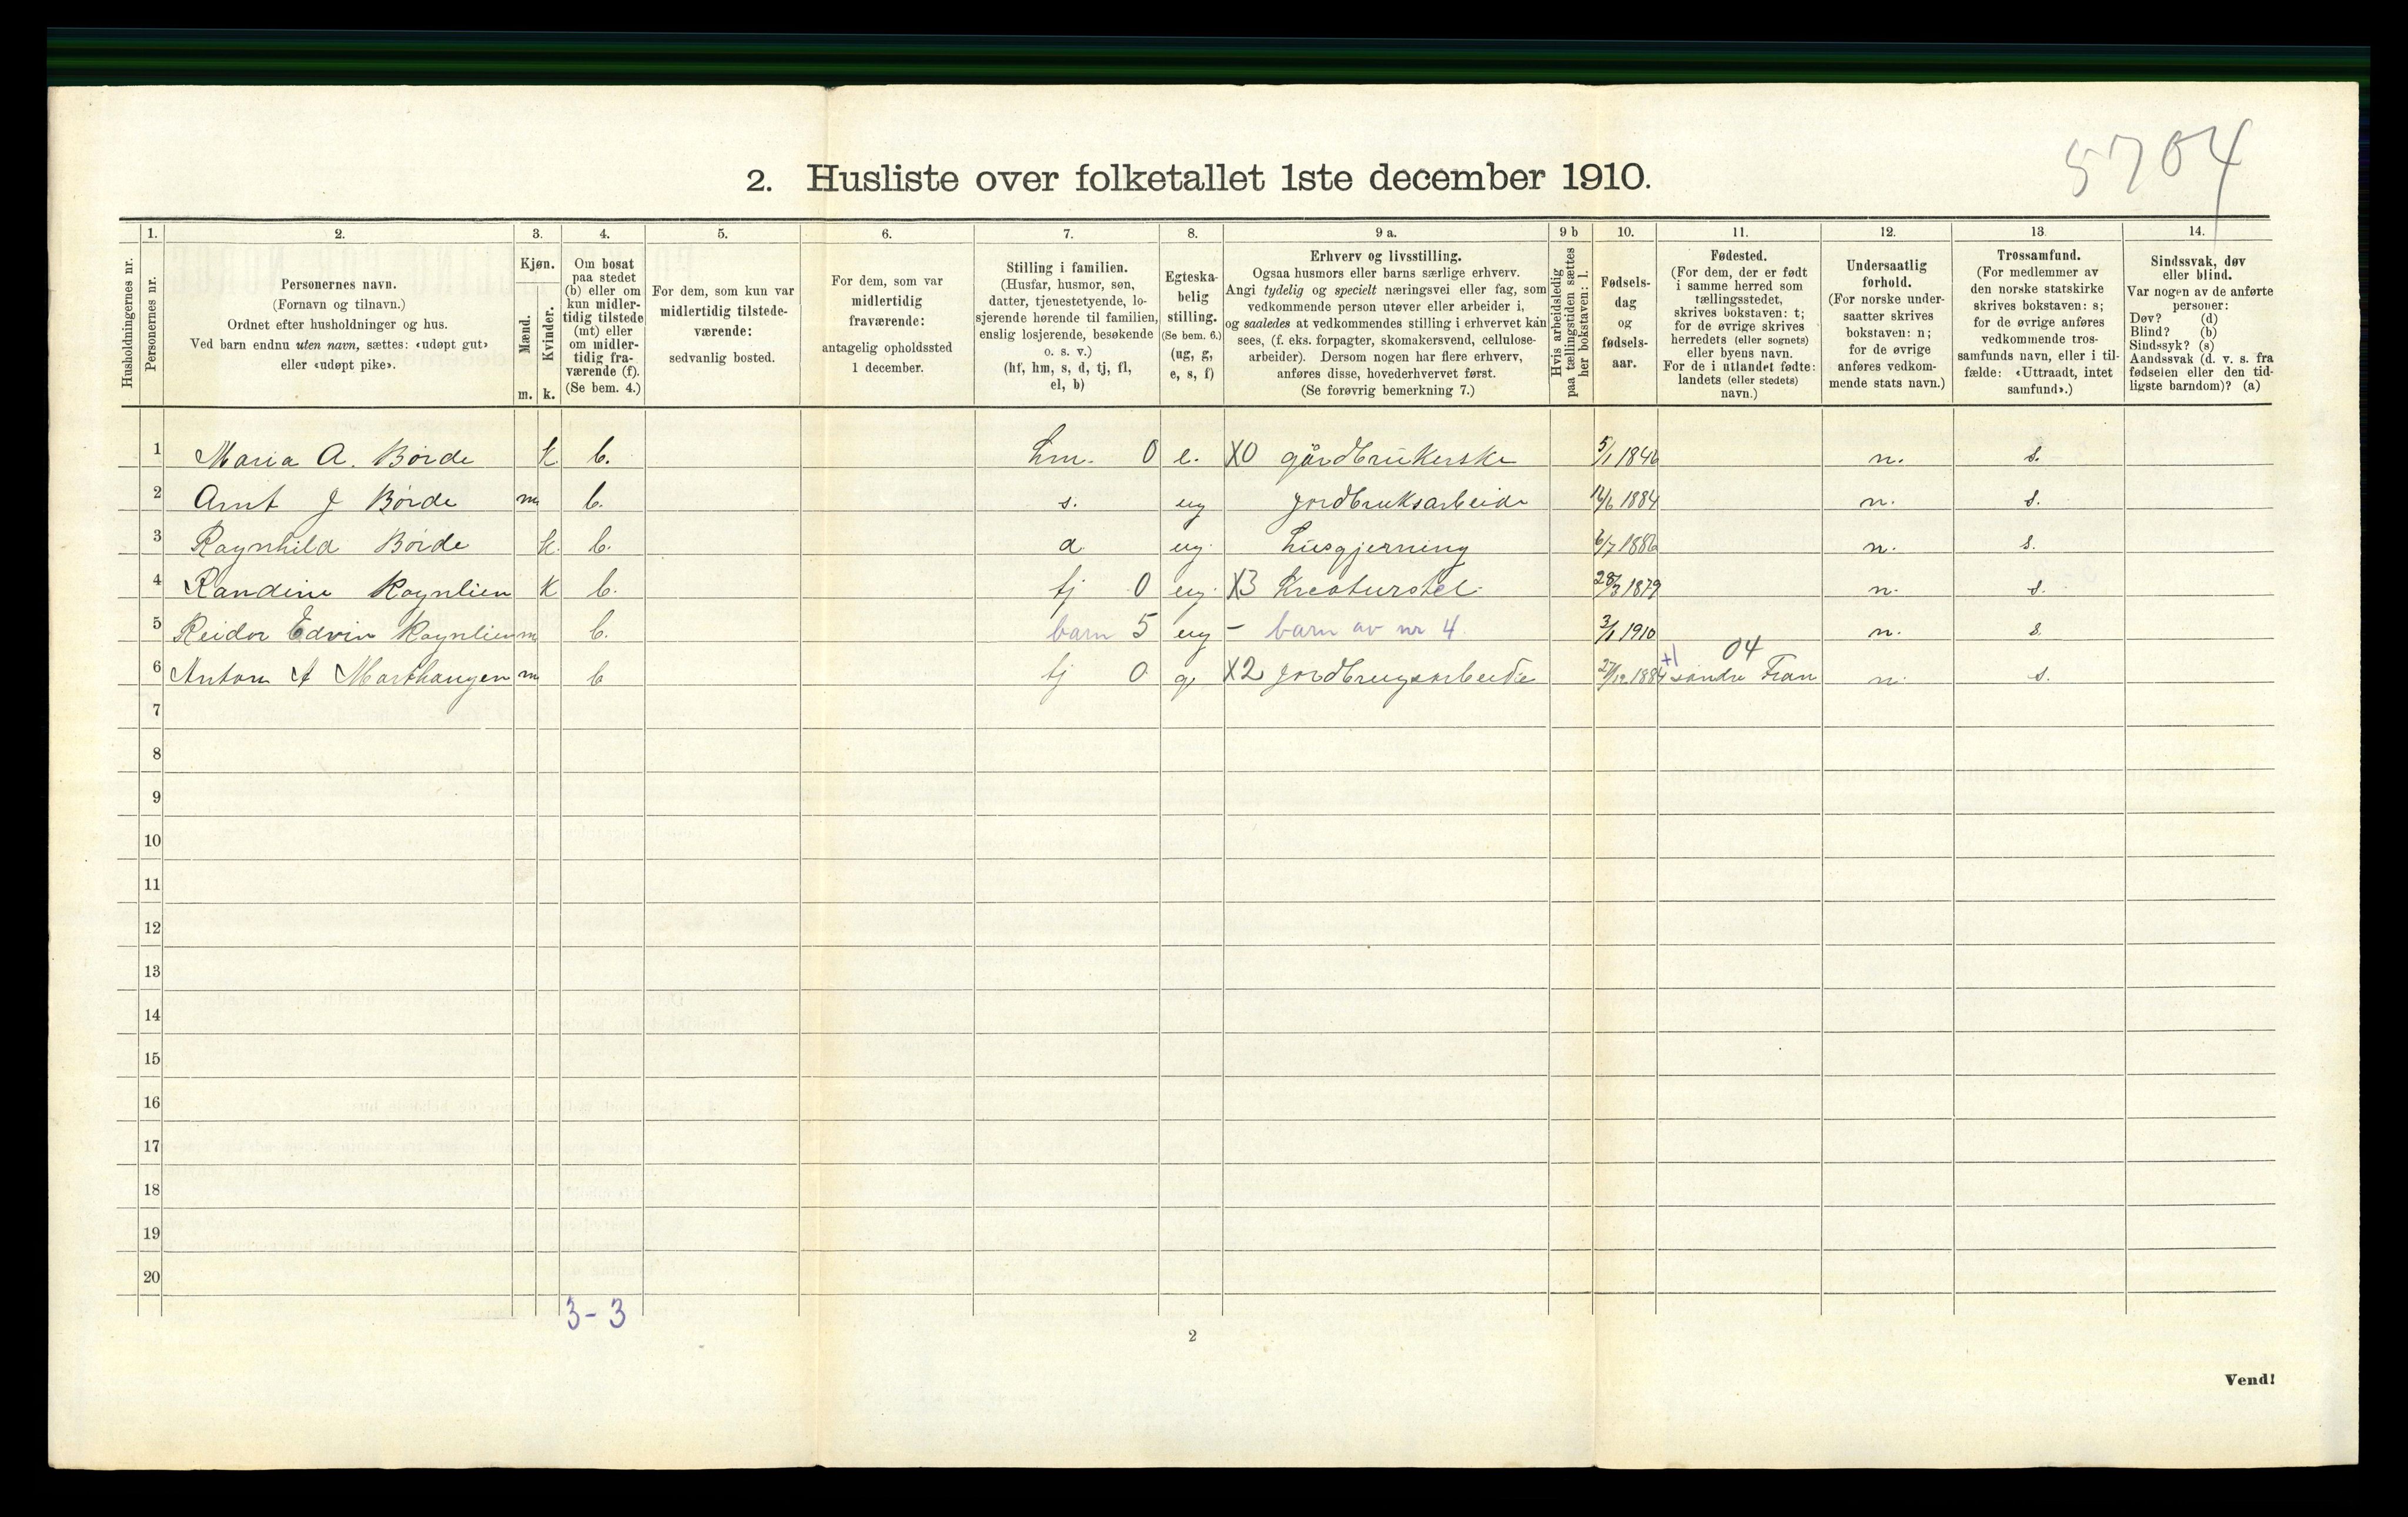 5704
2. Husliste over folketallet 1ste december 1910.
Husholdningernes nr.
1.
Personernes nr.
2.
Personernes navn.
(Fornavn og tilnavn.)
Ordnet efter husholdninger og hus.
Ved barn endnu uten navn, sættes: «udøpt gut»
eller «udøpt pike».
3.
Kjøn.
Mænd.
Kvinder.
m. k.
4.
Om bosat
paa stedet
(b) eller om
kun midler-
tidig tilstede
(mt) eller
om midler-
tidig fra-
værende (f).
(Se bem. 4.)
5.
For dem, som kun var
midlertidig tilstede-
værende:
sedvanlig bosted.
6.
For dem, som var
midlertidig
fraværende:
antagelig opholdssted
1 december.
7.
Stilling i familien.
(Husfar, husmor, søn,
datter, tjenestetyende, lo-
sjerende hørende til familien,
enslig losjerende, besøkende
o. s. v.)
(hf, hm, s, d, tj, fl,
el, b)
8.
Egteska-
belig
stilling.
(Se bem. 6.)
(ug, g,
e, s, f)
9 a.
Erhverv og livsstilling.
Ogsaa husmors eller barns særlige erhverv.
Angi tydelig og specielt næringsvei eller fag, som
vedkommende person utøver eller arbeider i,
og saaledes at vedkommendes stilling i erhvervet kan
sees, (f. eks. forpagter, skomakersvend, cellulose-
arbeider). Dersom nogen har flere erhverv,
anføres disse, hovederhvervet først.
(Se forøvrig bemerkning 7.)
9 b
Hvis arbeidsledig
paa tællingstiden sættes
her bokstaven: l.
10.
Fødsels-
dag
og
fødsels-
aar.
11.
Fødested.
(For dem, der er født
i samme herred som
tællingsstedet,
skrives bokstaven: t;
for de øvrige skrives
herredets (eller sognets)
eller byens navn.
For de i utlandet fødte:
landets (eller stedets)
navn.)
12.
Undersaatlig
forhold.
(For norske under-
saatter skrives
bokstaven: n;
for de øvrige
anføres vedkom-
mende stats navn.)
13.
Trossamfund.
(For medlemmer av
den norske statskirke
skrives bokstaven: s;
for de øvrige anføres
vedkommende tros-
samfunds navn, eller i til-
fælde: «Uttraadt, intet
samfund».)
14.
Sindssvak, døv
eller blind.
Var nogen av de anførte
personer:
Døv? (d)
Blind? (b)
Sindssyk? (s)
Aandssvak (d. v. s. fra
fødselen eller den tid-
ligste barndom)? (a)
1 Maria A. Börde k b. hm. 0 e. X0 gårdbrukerske 5/1 1846 n. s.
2 Arnt J Börde m b. s. ug jordbruksarbeide 16/6 1884 n. s.
3 Ragnhild Börde k b. d. ug. husgjerning 6/7 1886 n. s.
4 Randine Rognlien k b. tj 0 ug. X3 kreaturstel 28/3 1879 n. s.
5 Reidor Edvin Rognlien m b. barn 5 ug - barn av nr 4. 3/1 1910 n. s.
04
6 Anton A Marthaugen m b tj 0 g. X2 jordbrugsarbeide 27/12 1884 +1 söndre Fron n. s.
7
8
9
10
11
12
13
14
15
16
17
18
19
20
3-3
2
Vend!